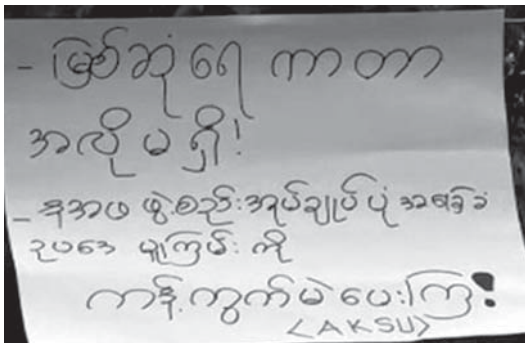 - မြစ်ဆုံရေကာတာ
အလိုမရှိ!
- နအဖ ဖွဲ့စည်းအုပ်ချုပ်ပုံ အခြေခံ
ဥပဒေ မူကြမ်း ကို
ကန့်ကွက်မဲပေးကြ!
<AKSU>